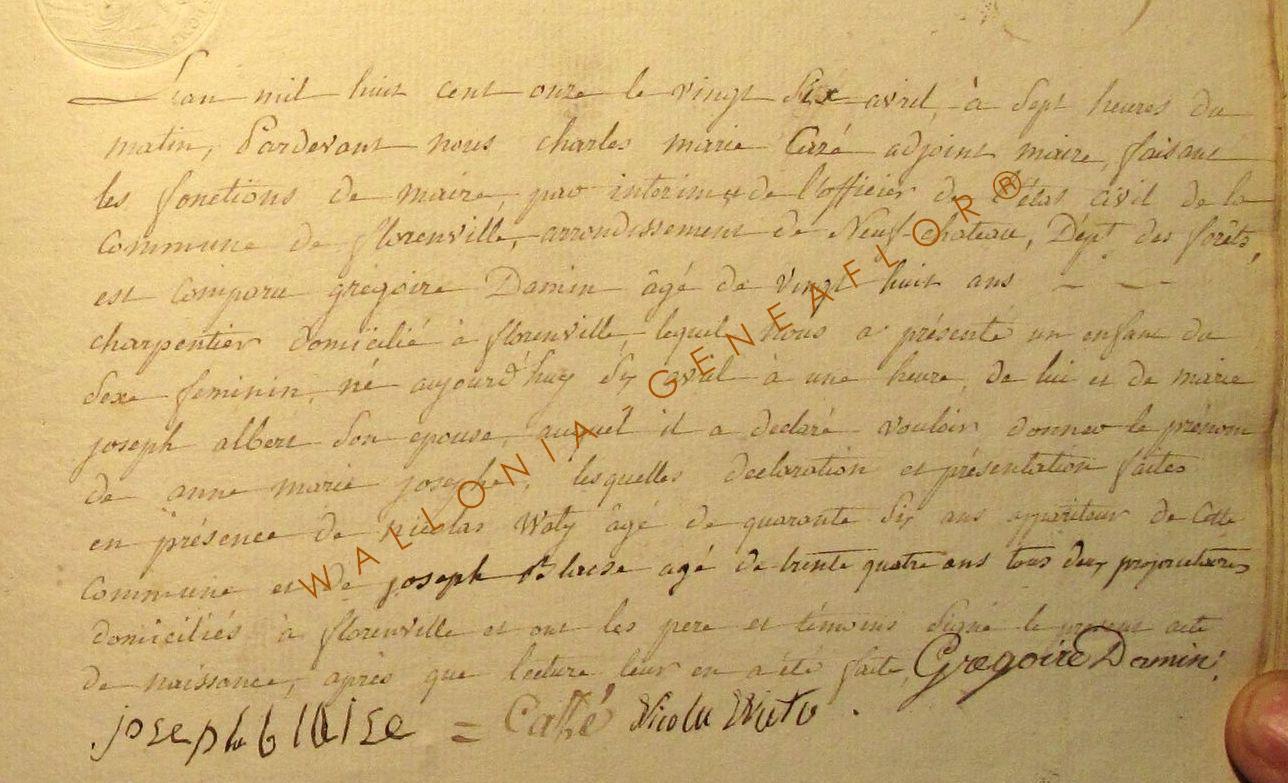 L'an mil huit cent onze le vingt six avril, à sept heures du
matin, Pardevant nous charles marie Caré adjoint maire, faisant
les fonctions de maire, par interim et de l'officier de l'état civil de la
commune de florenville, arrondissement de Neufchateau, Dépt des forêts,
est comparu grégoire Damin âgé de vingt huit ans
charpentier domicilié à florenville, lequel nous a présenté un enfant du
sexe feminin, né aujourd'huy six avril à une heure, de lui et de marie
joseph albert son epouse, auquel il a declaré vouloir donner le prénom
de anne marie josephe, lesquelles declaration et présentation faites
en présence de nicolas Waty âgé de quarante six ans appariteur de cette
commune et de joseph Blaise agé de trente quatre ans tous deux proprietaires
domiciliés à florenville et ont les pere et témoins signé le present acte
de naissance, après que lecture leur en a été faite, Gregoire Damin;
joseph blaise = Nicola
WALLONIA GENEAFLOR®